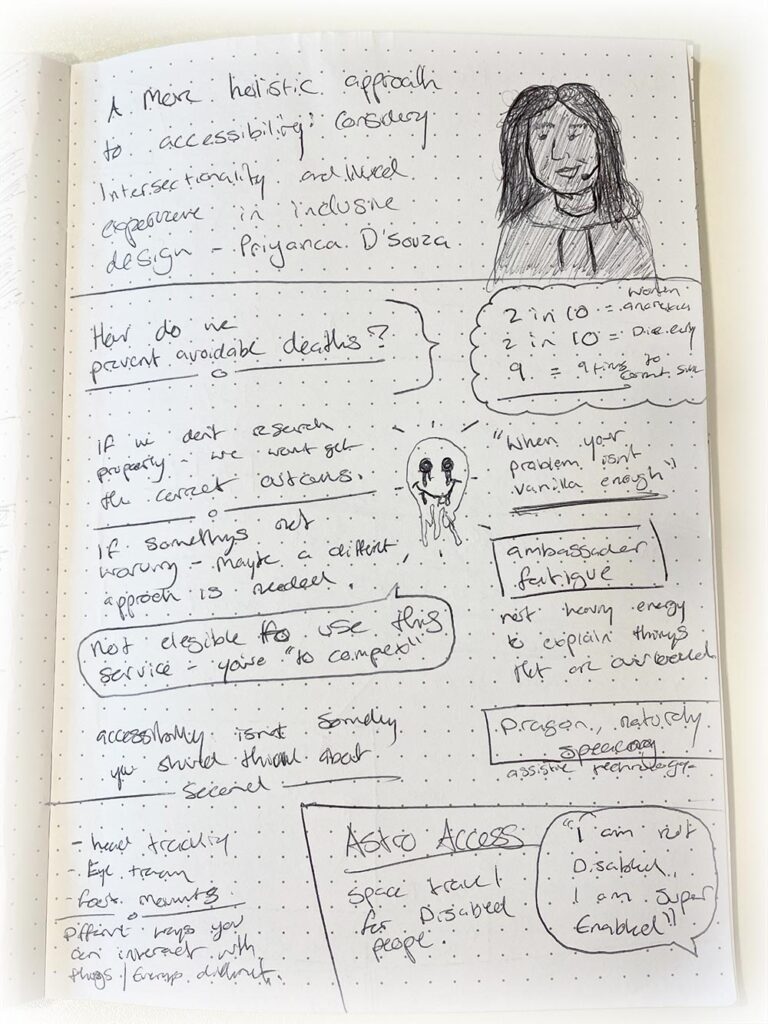 A more holistic approach
to accessibility: Considery
Intersectionality and lived
experience in inclusive
design - Priyanca D'souza
How do we
prevent avoidable deaths?
2 in 10 = women
2 in 10 =
9 = 9 times to
If we dont research
properly - we wont get
the correct outcoms.
If somethings not
working - maybe a different
approch is needed.
not elegible to use this
service - youre "to complex"
accessibility isnt somethy
you should think about
second
"When your
problem isnt
vanilla enough"
ambassader
fatigue
not having energy
to explain things
that are overlooked
Dragon, naturally
speaking
assistive technology
- head tracking
- Eye
- foot mounts
Different ways you
can interact with
things / different.
Astro Access
space travel
for Disabled
people.
"I am not
Disabled,
I am Super
Enabled"